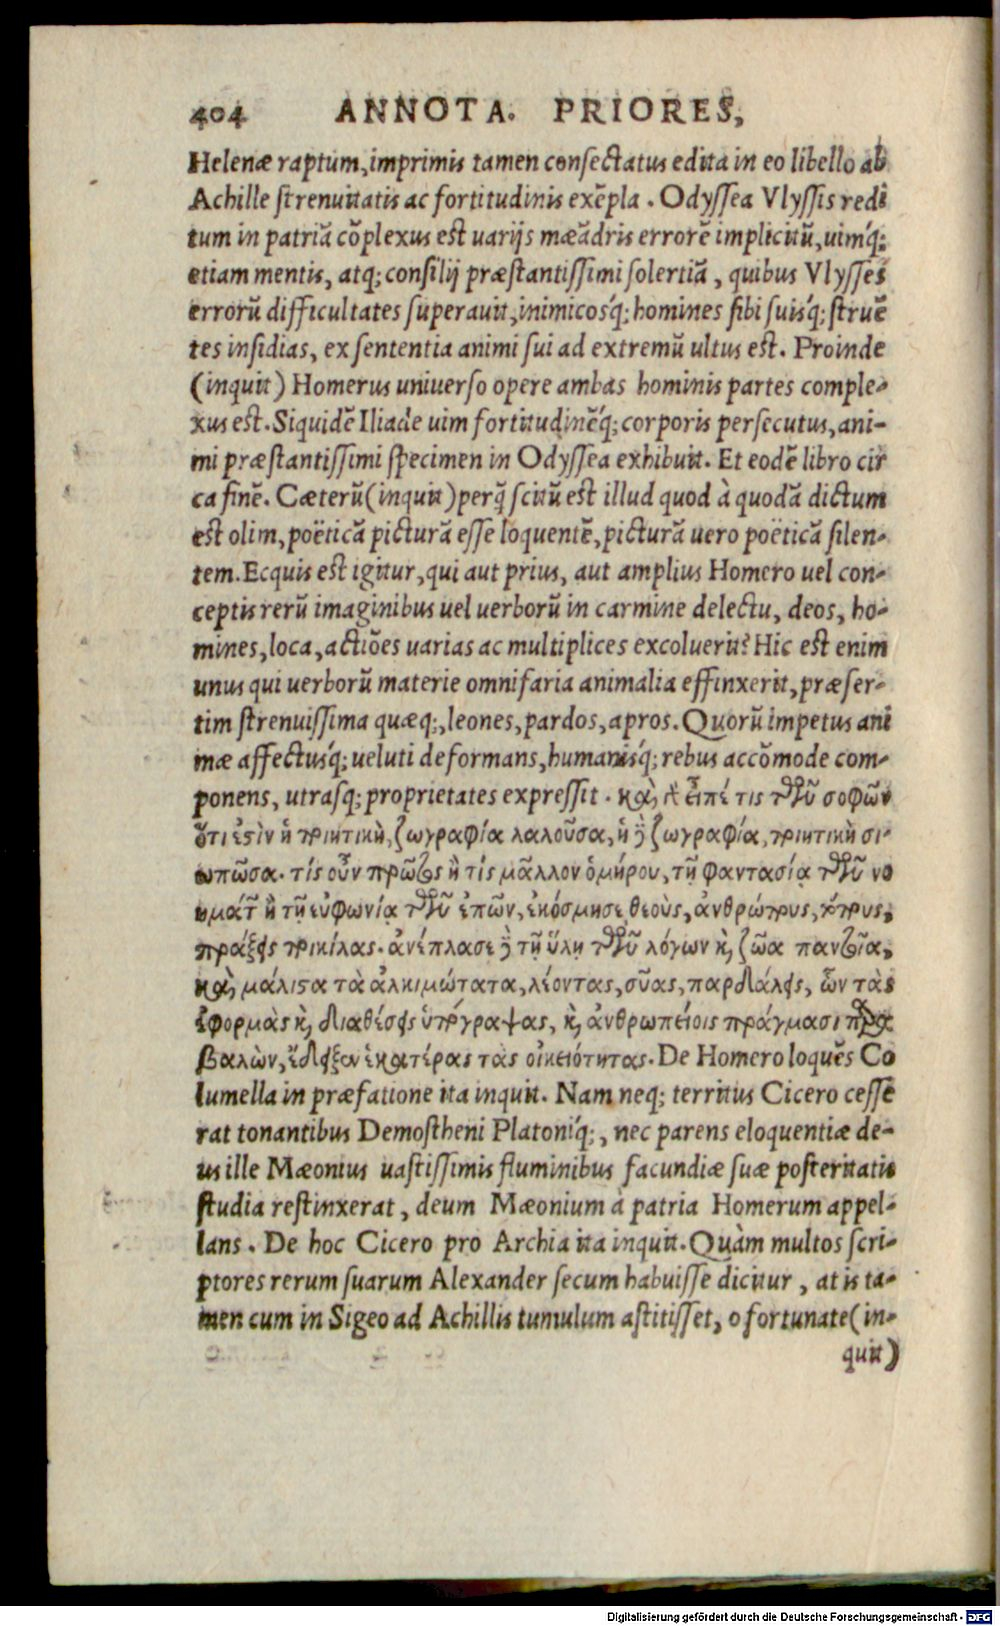 404 ANNOTA. PRIORES,
Helenæ raptum, imprimis tamen consectatus edita in eo libello ab
Achille strenuitatis ac fortitudinis exẽpla. Odyssea Vlyssis redi
tum in patriã cõplexus est uarijs mæãdris errorẽ implicitũ, uimq́;
etiam mentis, atq; consilij præstantissimi solertiã, quibus Vlysses
errorũ difficultates superauit, inimicosq́; homines sibi suisq́; struẽ
tes insidias, ex sententia animi sui ad extremũ ultus est. Proinde
(inquit) Homerus uniuerso opere ambas hominis partes comple-
xus est. Siquidẽ Iliade uim fortitudinẽq́; corporis persecutus, ani-
mi præstantissimi specimen in Odyssea exhibuit. Et eodẽ libro cir
ca finẽ. Cæterũ (inquit) perq̃ scitũ est illud quod à quodã dictum
est olim, poëticã picturã esse loquentẽ, picturã uero poëticã silen-
tem. Ecquis est igitur, qui aut prius, aut amplius Homero uel con-
ceptis rerũ imaginibus uel uerborũ in carmine delectu, deos, ho-
mines, loca, actiões uarias ac multiplices excoluerit? Hic est enim
unus qui uerborũ materie omnifaria animalia effinxerit, præser-
tim strenuissima quæq;, leones, pardos, apros. Quorũ impetus ani
mæ affectusq́; ueluti deformans, humanisq́; rebus accõmode com-
ponens, utrasq; proprietates expressit. καὶ εἶπέ τις τῶν σοφῶν
ὅτι ἐστὶν ἡ ποιητικὴ, ζωγραφία λαλοῦσα, ἡ ἢ ζωγραφία, ποιητικὴ σι-
ωπῶσα. τίς οὖν πρῶτος ἢ τίς μᾶλλον ὁμήρου, τῇ φαντασίᾳ τῶν νο
ημάτων ἢ τῇ εὐφωνίᾳ τῶν ἐπῶν, ἐκόσμησε θεοὺς, ἀνθρώπους, τόπους,
πράξεις ποικίλας. ἀνέπλασε ἢ τῇ ὕλῃ τῶν λόγων καὶ ζῶα παντοῖα,
καὶ μάλιστα τὰ ἀλκιμώτατα, λέοντας, σῦας, παρδάλεις, ὧν τὰς
ἐφορμὰς καὶ διαθέσεις ὑπογράψας, καὶ ἀνθρωπείοις πράγμασι παρα
βαλὼν, ἔδειξεν ἑκατέρας τὰς οἰκειότητας. De Homero loquẽs Co
lumella in præfatione ita inquit. Nam neq; territus Cicero cesse
rat tonantibus Demostheni Platoniq́;, nec parens eloquentiæ de-
us ille Mæonius uastissimis fluminibus facundiæ suæ posteritatis
studia restinxerat, deum Mæonium à patria Homerum appel-
lans. De hoc Cicero pro Archia ita inquit. Quàm multos scri-
ptores rerum suarum Alexander secum habuisse dicitur, at is ta-
men cum in Sigeo ad Achillis tumulum astitisset, o fortunate (in-
quit)
Digitalisierung gefördert durch die Deutsche Forschungsgemeinschaft - DFG